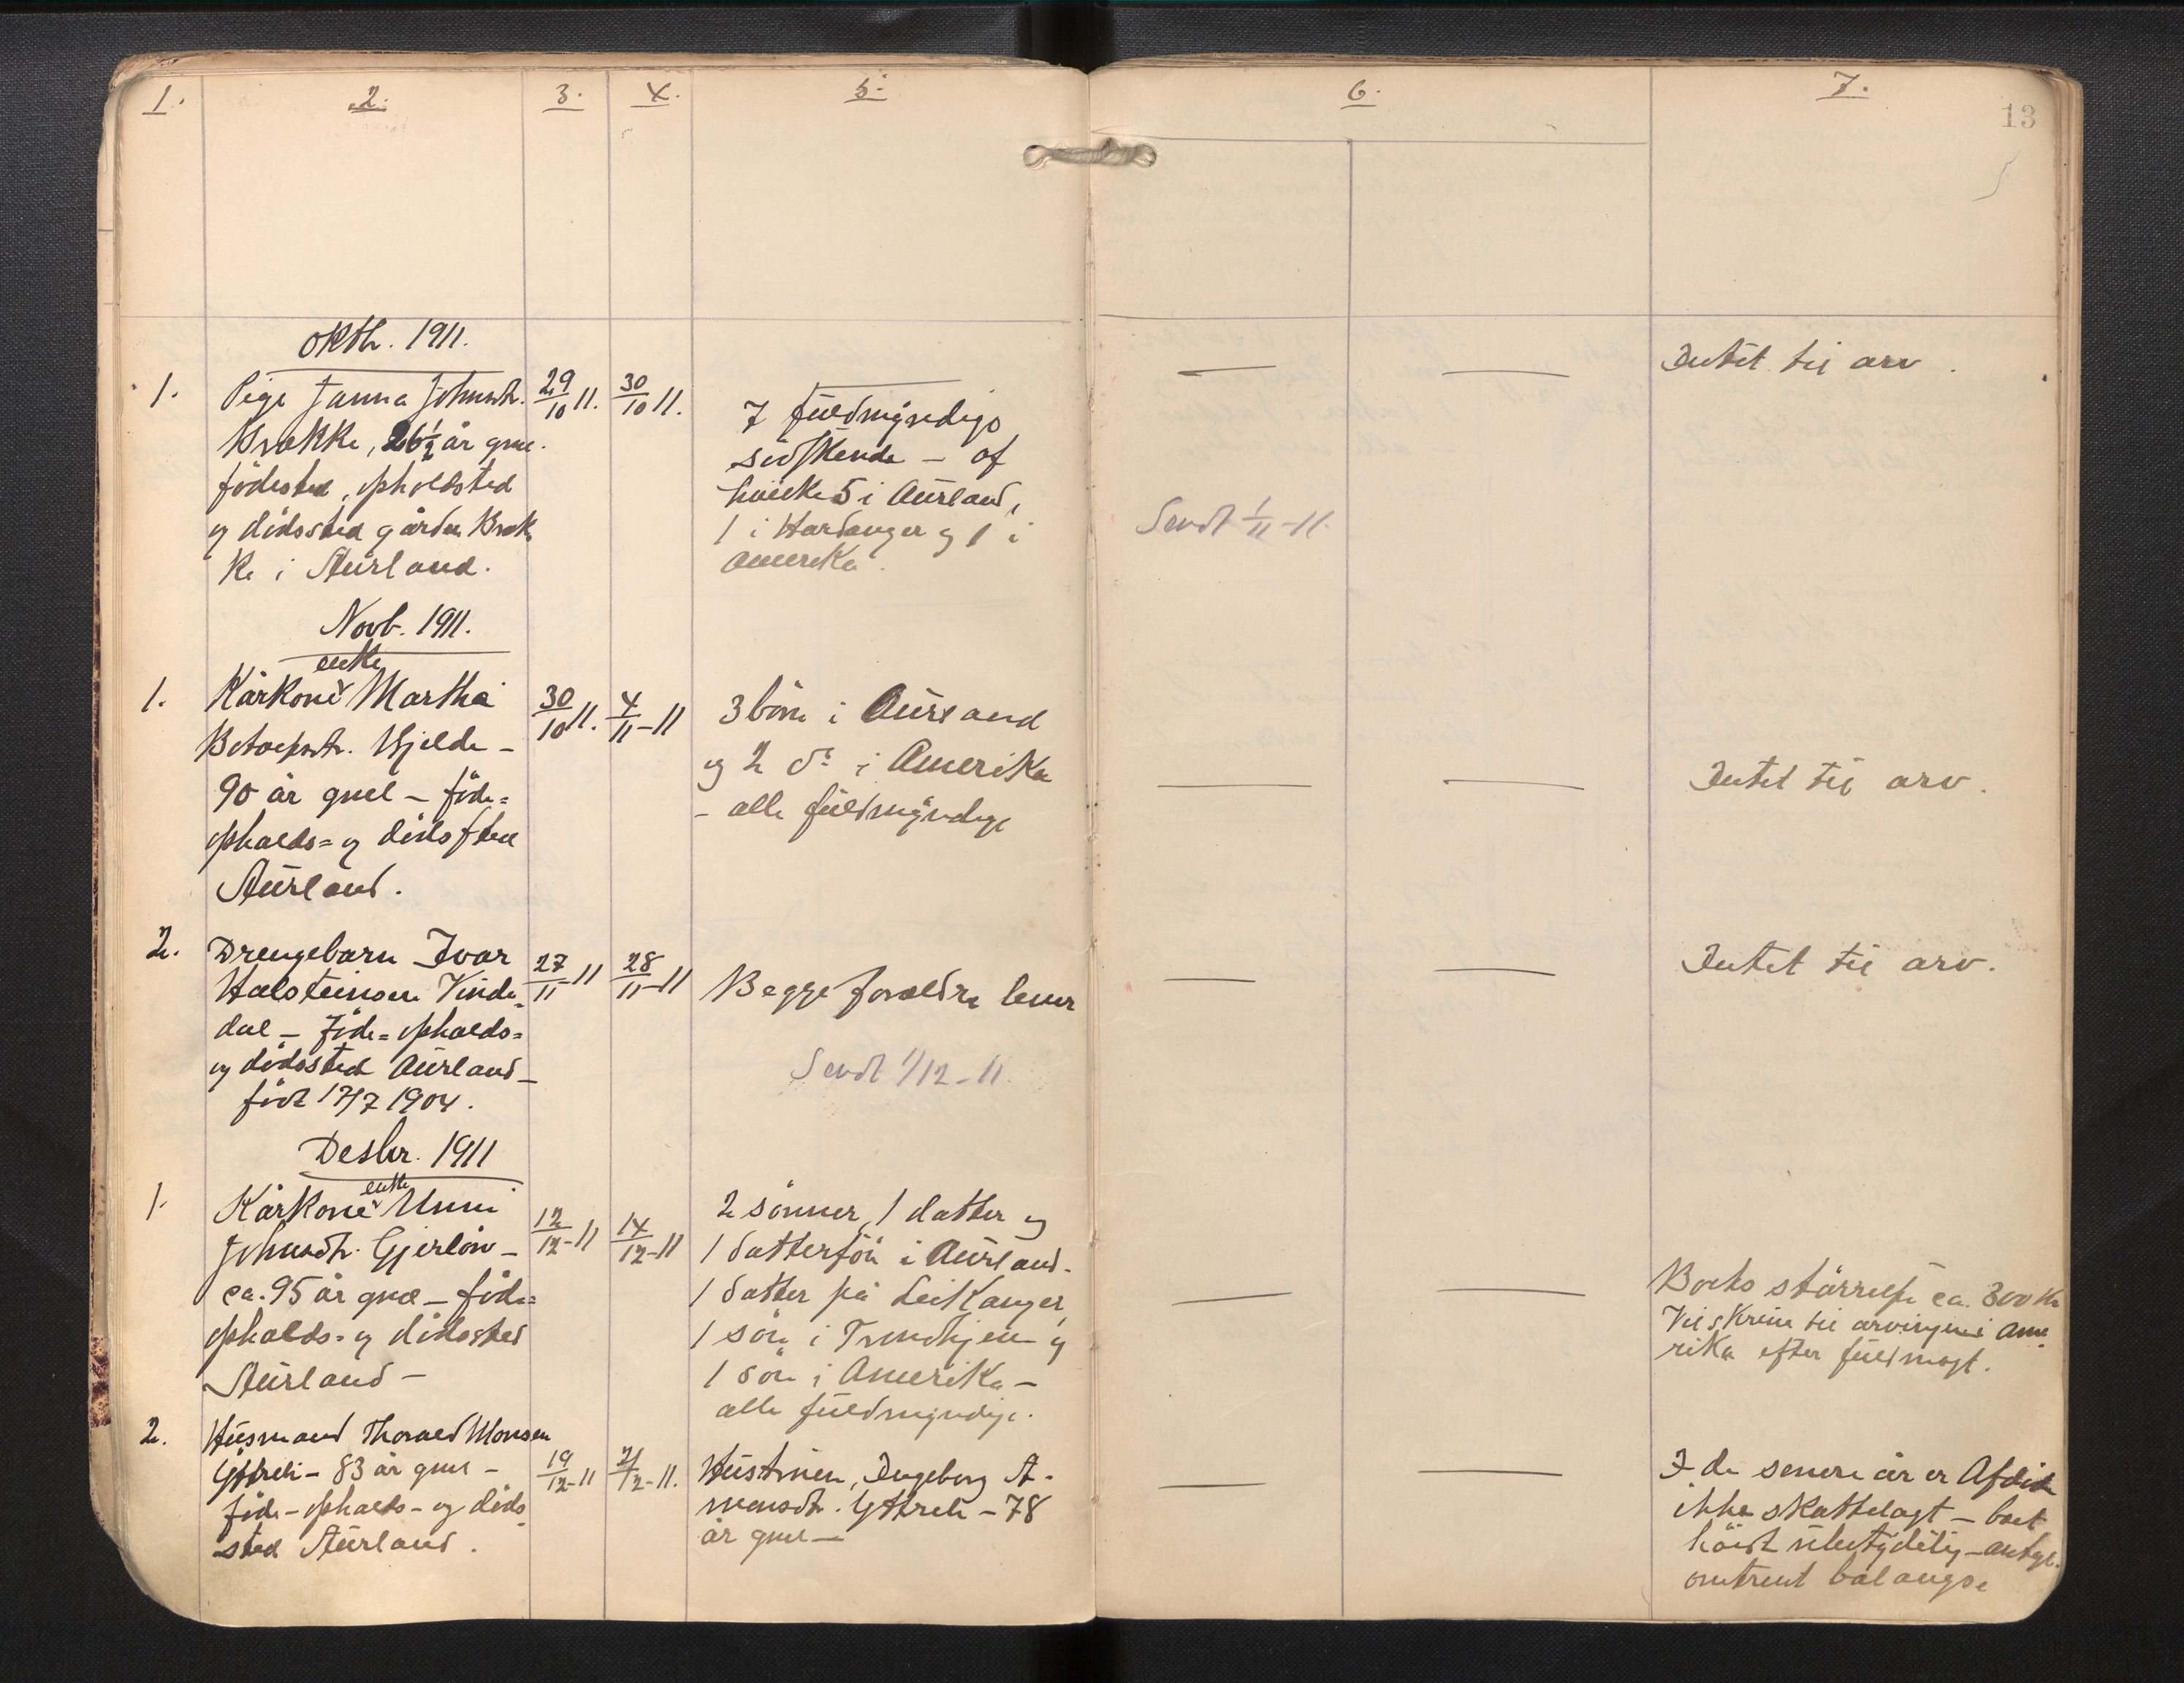 1. 2. 3. 4. 5. 6. 7.
13
Oktbr. 1911.
1. Pige Janna Johnsdtr. 29/10 11. 30/10 11.
Brekke, 26½ år gml.
fødested, opholdsted
og dødssted gården Brek
ke i Aurland.
7 fuldmyndige
sødskende – af
hvilke 5 i Aurland,
1 i Hardanger og 1 i
Amerika.
Sendt 1/11 – 11.
— — Intet til arv.
Novb. 1911.
enke
1. Kårkone Martha 30/10 11. 4/11 – 11
Bjelde –
90 år gml – føde=
opholds= og dødssted
Aurland.
3 børn i Aurland
og 2 do i Amerika
– alle fuldmyndige
— — Intet til arv.
2. Drengebarn Ivar 27/11 – 11 28/11 – 11
Halsteinsen Vinde=
dal – føde= opholds=
og dødssted Aurland –
født 17/7 1904.
Begge forældre lever
Sendt 1/12 – 11.
— — Intet til arv.
Desbr. 1911
enke
1. Kårkone Unni 12/12 – 11 14/12 – 11
Johnsdtr. Gjerløv –
ca. 95 år gml – føde=
opholds= og dødssted
Aurland –
2 sønner, 1 datter og
1 dattersøn i Aurland.
1 datter på Leikanger,
1 søn i Trondhjem og
1 søn i Amerika –
alle fuldmyndige.
— — Boets størrelse ca. 300 kr
Vil skrive til arvingen i Ame
rika efter fuldmagt.
2. Husmand Thorald Monsen 19/12 – 11 21/12 – 11.
Ytreli – 83 år gml –
føde – opholds – og døds
sted Aurland.
Hustruen, Ingeborg A-
mensdtr. Ytreli – 78
år gml –
— — I de senere år er Afdøde
ikke skattelagt – boet
høist ubetydelig – antgl.
omtrent balangse